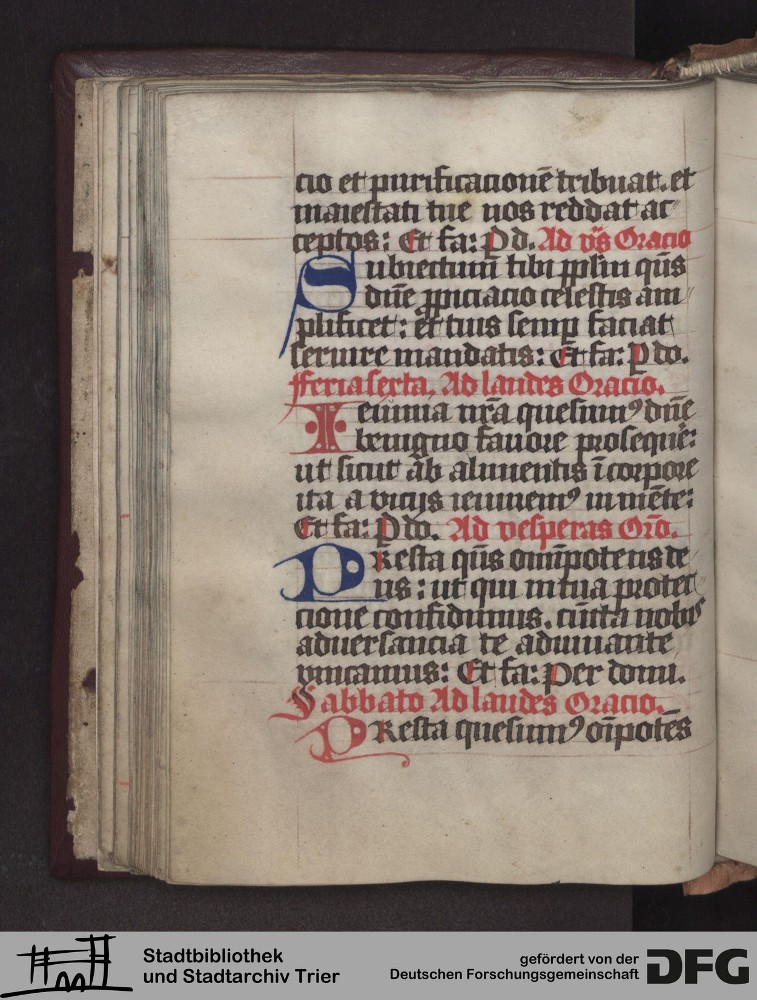 cio et purificacionē tribuat. et
maiestati tue nos reddat ac
ceptos: Et fa: P d. Ad vs̄ Oracio
Subiectum tibi pplm̄ qūs
dn̄e ppiciacio celestis am
plificet: et tuis semp faciat
seruire mandatis: Et fa: P do.
fferia sexta, Ad laudes Oracio.
Ieiunia nr̄a quesumꝰ dn̄e
benigno fauore proseque:
ut sicut ab alimentis ī corpore
ita a vicijs ieiunemꝰ in mēte:
Et fa: P do. Ad vesperas Orō.
Presta qūs omīpotens de
us: ut qui in tua protec
cione confidimus. cūcta nobis
aduersancia te adiuuante
vincamus: Et fa: Per domi.
Sabbato Ad laudes Oracio.
Presta quesumꝰ oīpotēs
Stadtbibliothek
und Stadtarchiv Trier
gefördert von der
Deutschen Forschungsgemeinschaft DFG